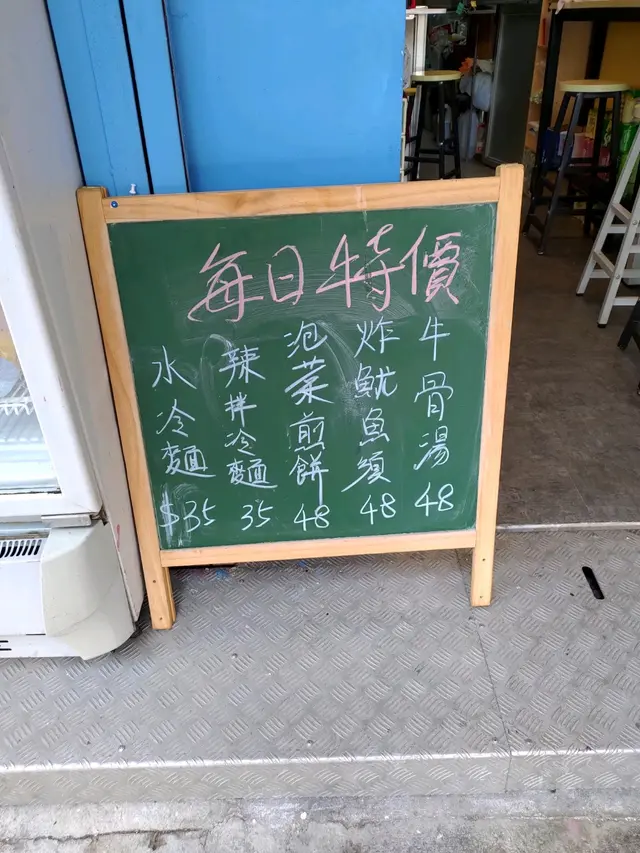 每日特價
水冷麵 $35
辣拌冷麵 35
泡菜煎餅 48
炸魷魚須 48
牛骨湯 48